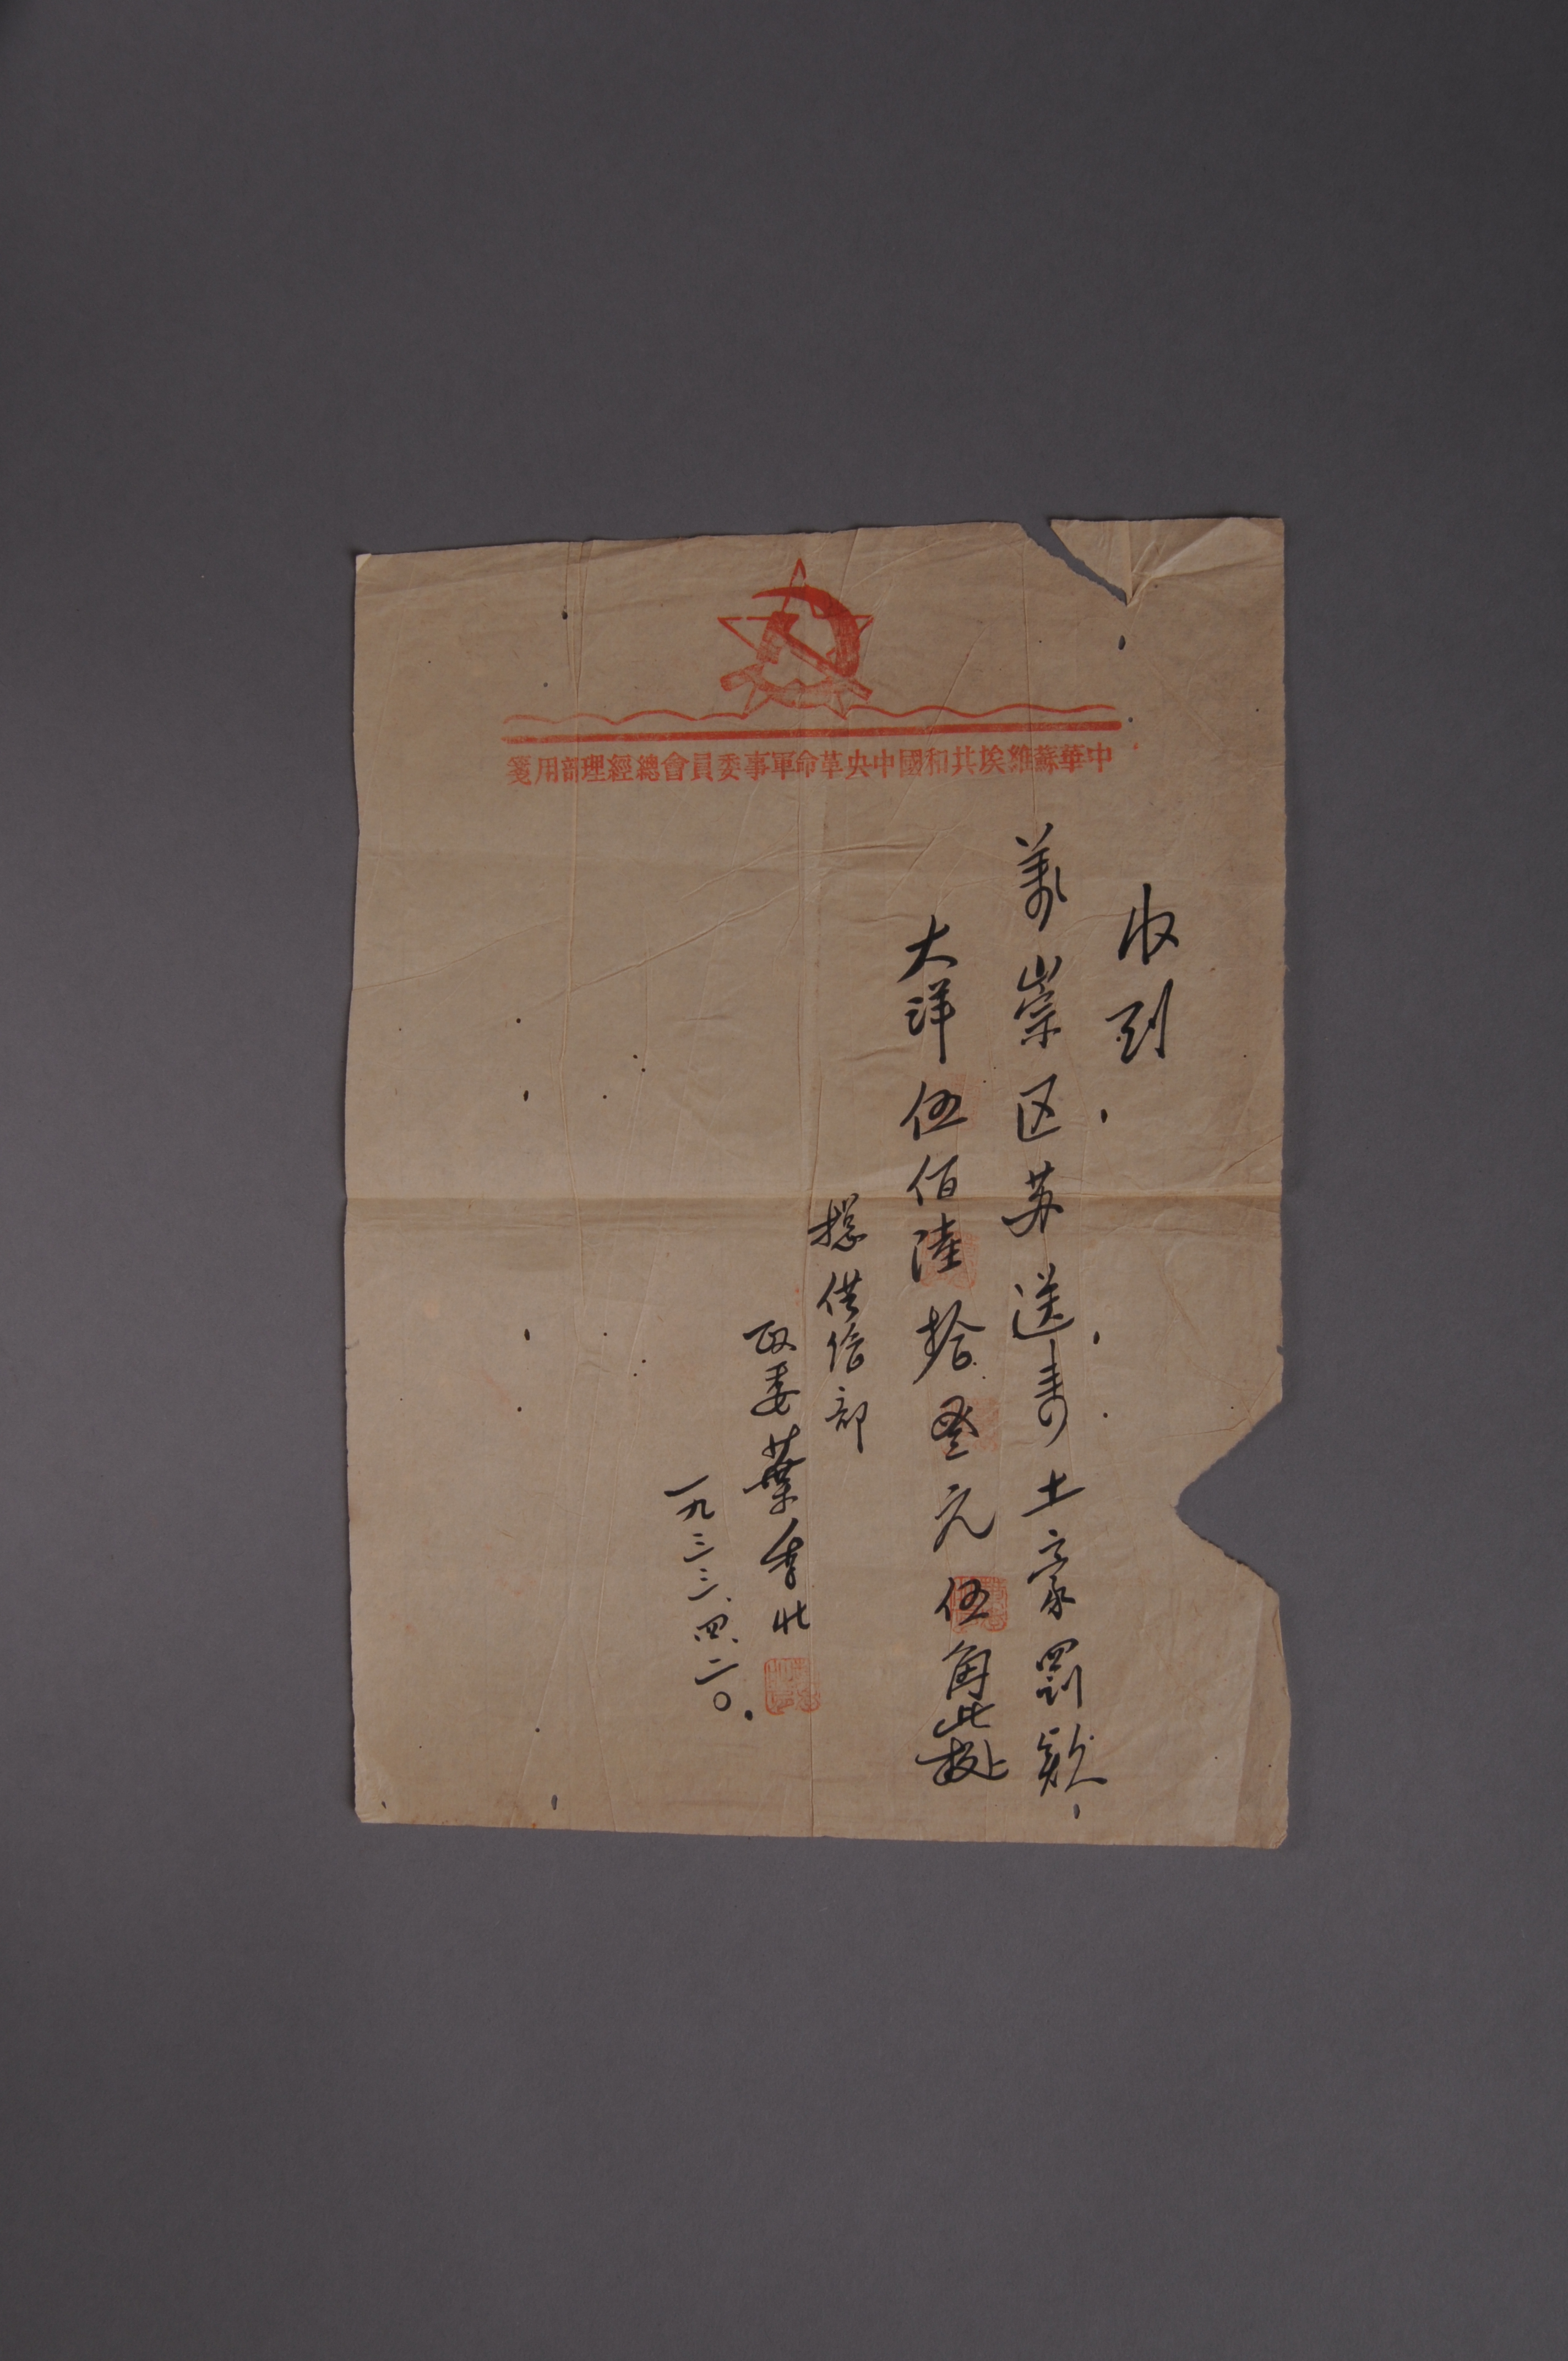 中華蘇維埃共和國中央革命軍事委員會總經理部用箋
收到
崇区苏送来土豪罰款
大洋伍佰陸拾叁元伍角此據
總供给部
政委葉季壯
一九三三、四、二〇.